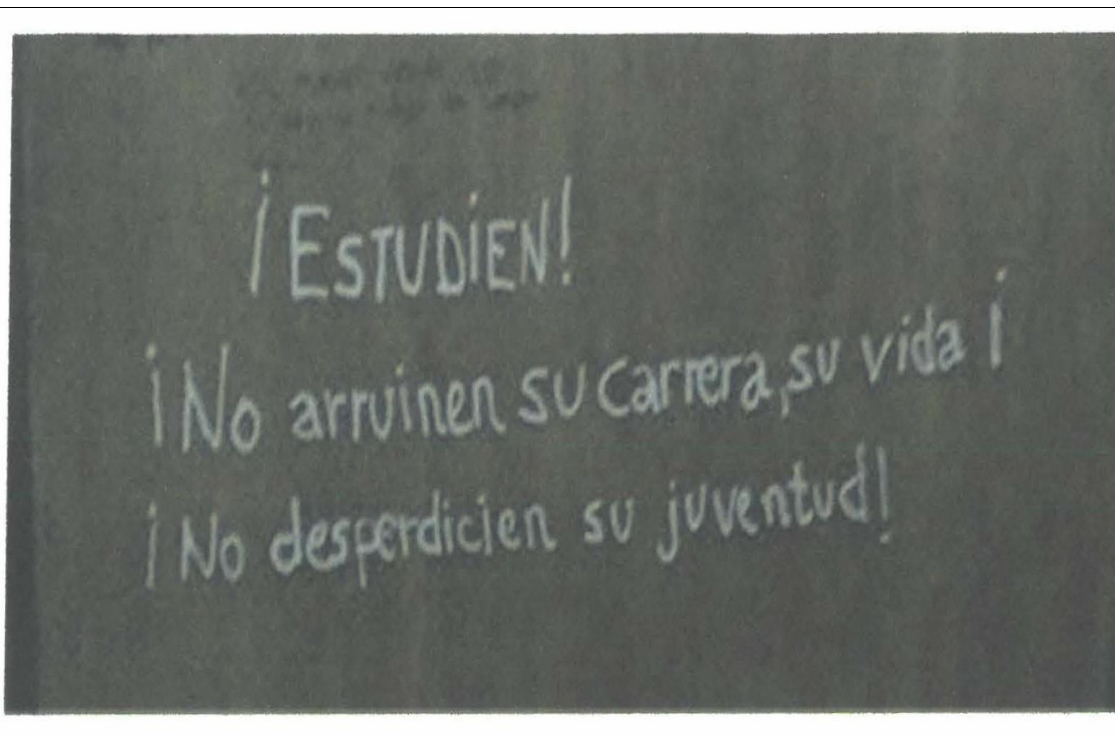 ¡ESTUDIEN!
¡No arruinen su carrera, su vida ¡
¡No desperdicien su juventud!